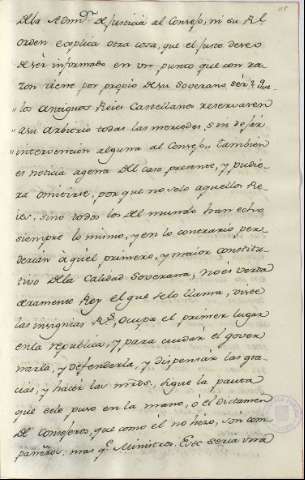 Della Admon. de Justicia al Consejo, ni su Rl.
orden explica otra cosa, que el justo deseo
de ser informado en un punto que con ra-
zon tiene por propio de su Soverano ser. Que
" los Antiguos Reies Castellanos reservasen
" a su Arbitrio todas las mercedes, sin dejár
" intervención alguna al Consejo, tambien
es noticia agena del caso presente, y pudie-
ra omitirse, porque no solo aquellos Re-
ies, sino todos los del mundo han echo
siempre lo mismo, y en lo contrario per-
derian aquel primero, y maior constitu-
tivo dela Calidad Soverana, no es verda-
deramente Rey el que selo llama, viste
las insignias Rs, ocupa el primer lugar
enla republica, y para cuidár el gover-
narla, y defenderla, y dispensár las gra-
cias, y hacer las mrds. sigue la pauta
que sele puso en la mano, ó el dictamen
de Consejeros, que como él no hizo, son com-
pañeros, mas qe. Ministros. Este seria una